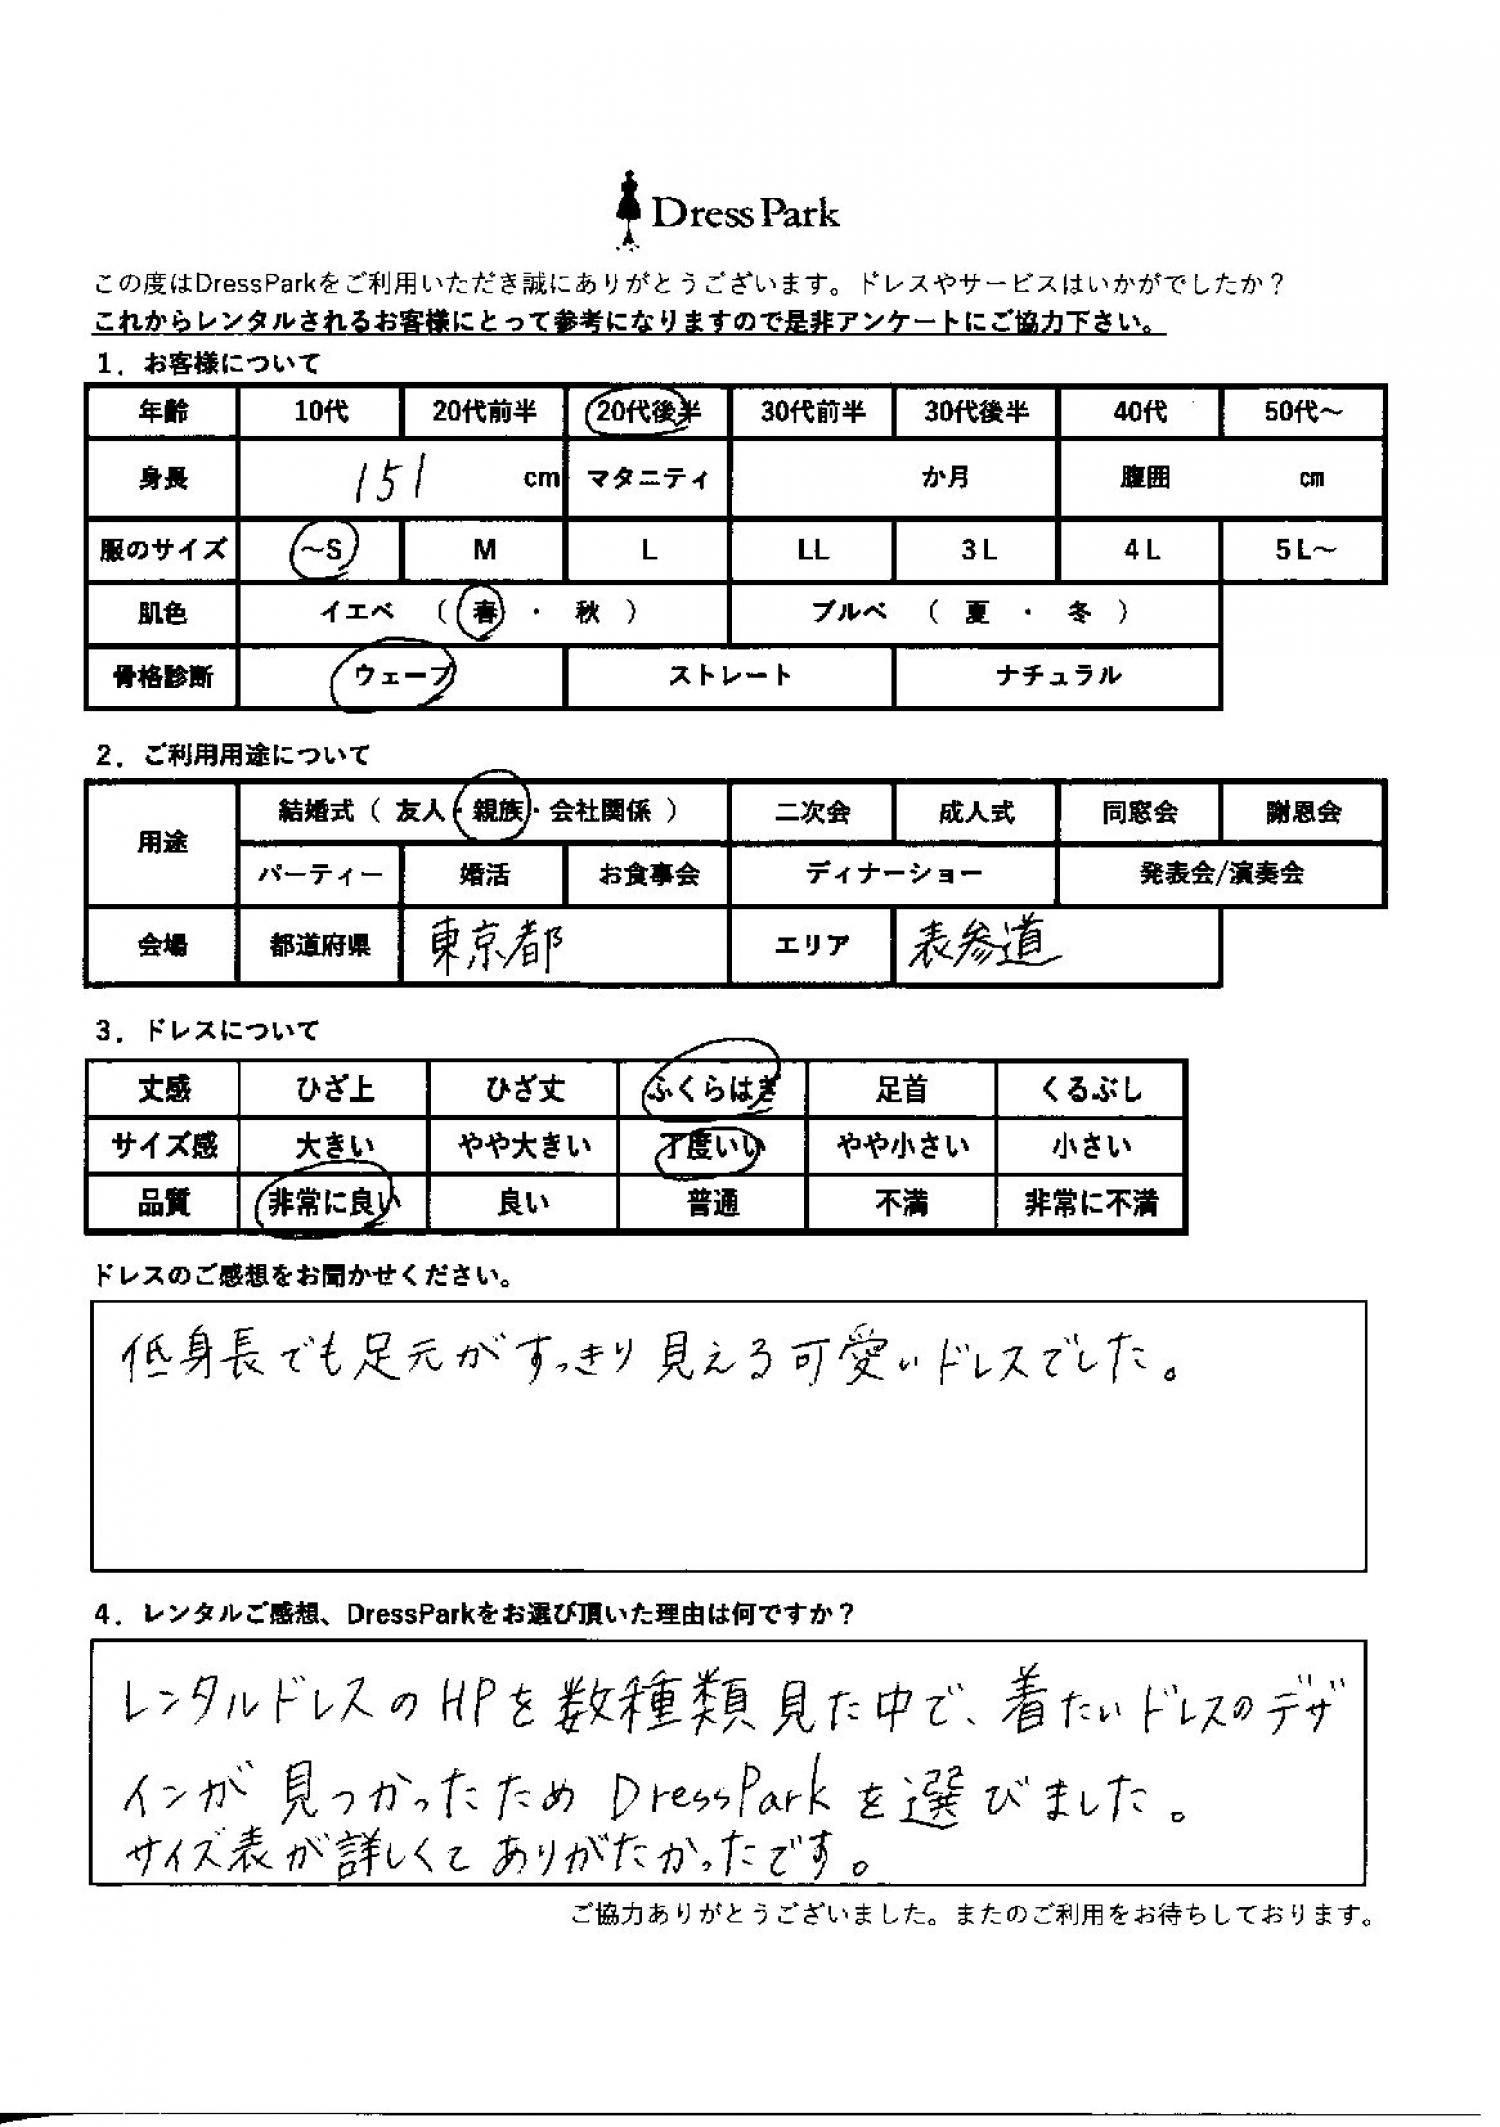 Dress Park
この度はDressParkをご利用いただき誠にありがとうございます。ドレスやサービスはいかがでしたか？
これからレンタルされるお客様にとって参考になりますので是非アンケートにご協力下さい。
1．お客様について
年齢 10代 20代前半 20代後半 30代前半 30代後半 40代 50代～
身長 151 cm マタニティ か月 腹囲 cm
服のサイズ ～S M L LL 3L 4L 5L～
肌色 イエベ （ 春 ・ 秋 ） ブルベ （ 夏 ・ 冬 ）
骨格診断 ウェーブ ストレート ナチュラル
2．ご利用用途について
用途 結婚式（ 友人・親族・会社関係 ） 二次会 成人式 同窓会 謝恩会
パーティー 婚活 お食事会 ディナーショー 発表会/演奏会
会場 都道府県 東京都 エリア 表参道
3．ドレスについて
丈感 ひざ上 ひざ丈 ふくらはぎ 足首 くるぶし
サイズ感 大きい やや大きい 丁度いい やや小さい 小さい
品質 非常に良い 良い 普通 不満 非常に不満
ドレスのご感想をお聞かせください。
低身長でも足元がすっきり見える可愛いドレスでした。
4．レンタルご感想、DressParkをお選び頂いた理由は何ですか？
レンタルドレスのHPを数種類見た中で、着たいドレスのデザ
インが見つかったためDressParkを選びました。
サイズ表が詳しくてありがたかったです。
ご協力ありがとうございました。またのご利用をお待ちしております。